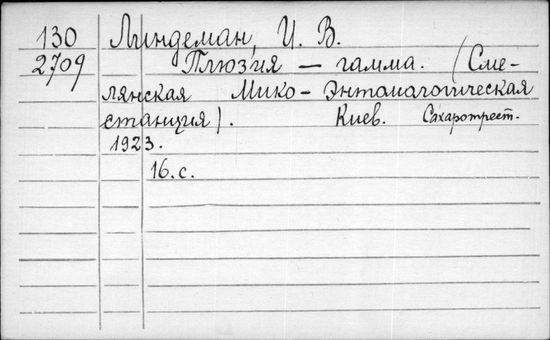 130 Линдеман, И. В.
2709 Плюзия — гамма. (Сме-
лянская Мико- Энтомологическая
станция). Киев. Сахаротрест.
1923.
16.с.